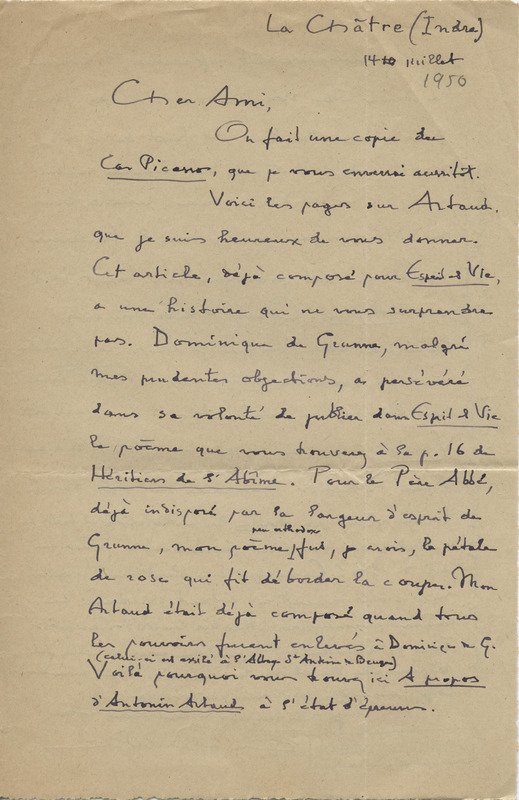 La Châtre (Indre)
14 juillet
1950
Cher Ami,
On fait une copie du
Cas Picasso, que je vous enverrai aussitôt.
Voici les pages sur Artaud.
que je suis heureux de vous donner.
Cet article, déjà composé pour Esprit et Vie,
a une histoire qui ne vous surprendra
pas. Dominique de Grunne, malgré
mes prudentes objections, a persévéré
dans sa volonté de publier dans Esprit et Vie
le poème que vous trouverez à la p. 16 de
Héritiers de l'Abîme. Pour le Père Abbé,
déjà indisposé par la largeur d'esprit de
peu orthodoxe
Grunne, mon poème fut, je crois, le pétale
de rose qui fit déborder la coupe. Mon
Artaud était déjà composé quand tous
les pouvoirs furent enlevés à Dominique de G.
(celui-ci est exilé à l'Abbaye St André de Bruges)
Voilà pourquoi vous trouvez ici A propos
d'Antonin Artaud à l'état d'épreuves.